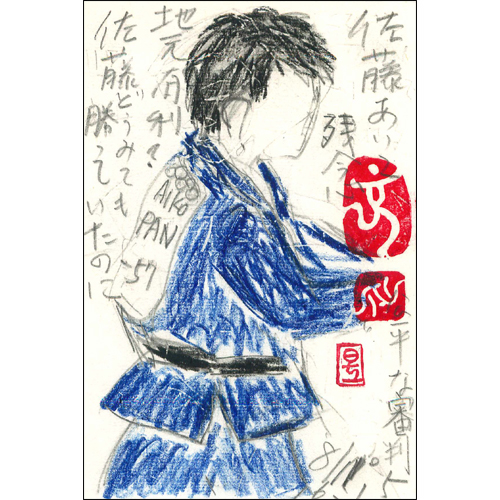 佐藤あい
残念
平な審判
地元有利?
佐藤どうみても
勝っていたのに
AIKO
PAN
-57
8/10